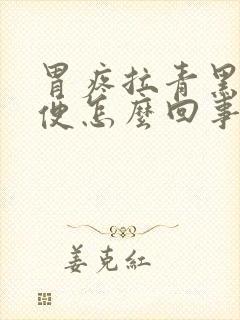 胃疼拉青黑
便怎麼回事
姜克紅